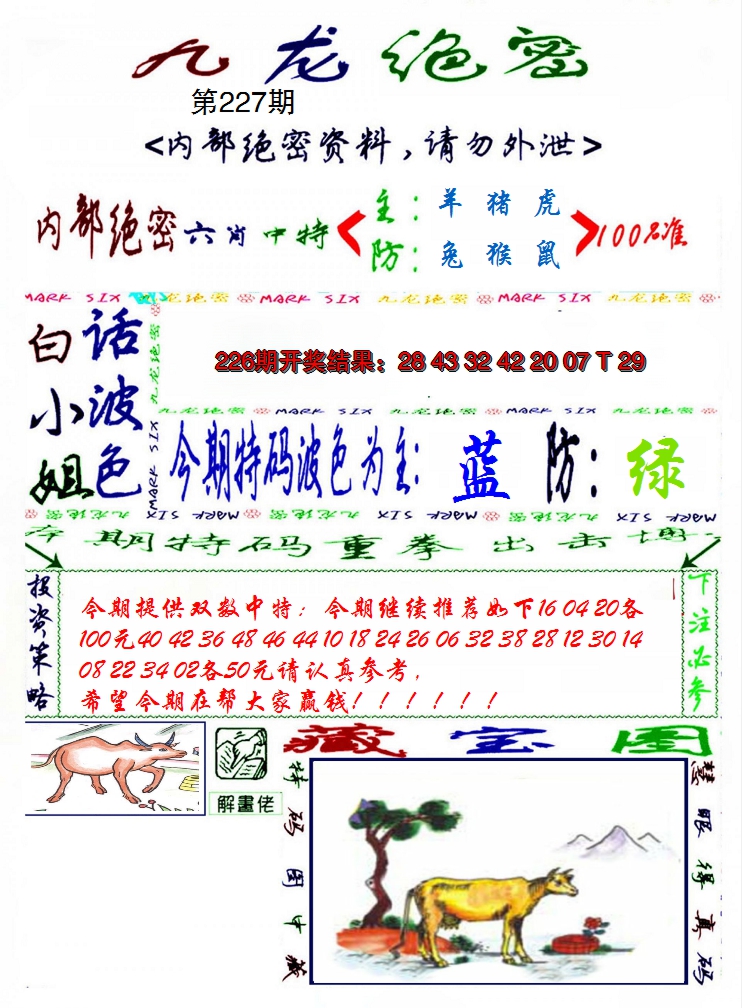 九龙绝密
第227期
<内部绝密资料，请勿外泄>
内部绝密六肖中特
主：羊 猪 虎
防：兔 猴 鼠
100%准
MARK SIX 九龙绝密 MARK SIX 九龙绝密 MARK SIX 九龙绝密
白小姐
话波色
九龙绝密 MARK SIX
226期开奖结果：28 43 32 42 20 07 T 29
九龙绝密 MARK SIX 九龙绝密 MARK SIX 九龙绝密
今期特码波色为主：蓝 防：绿
MARK SIX 九龙绝密 MARK SIX 九龙绝密 MARK SIX 九龙绝密
本期特码重拳出击博
投资策略
今期提供双数中特：今期继续推荐如下16 04 20各
100元40 42 36 48 46 44 10 18 24 26 06 32 38 28 12 30 14
08 22 34 02各50元请认真参考，
希望今期在帮大家赢钱！！！！！！
下注必参
解畫佬
藏宝图
特码图中藏
慧眼得真码